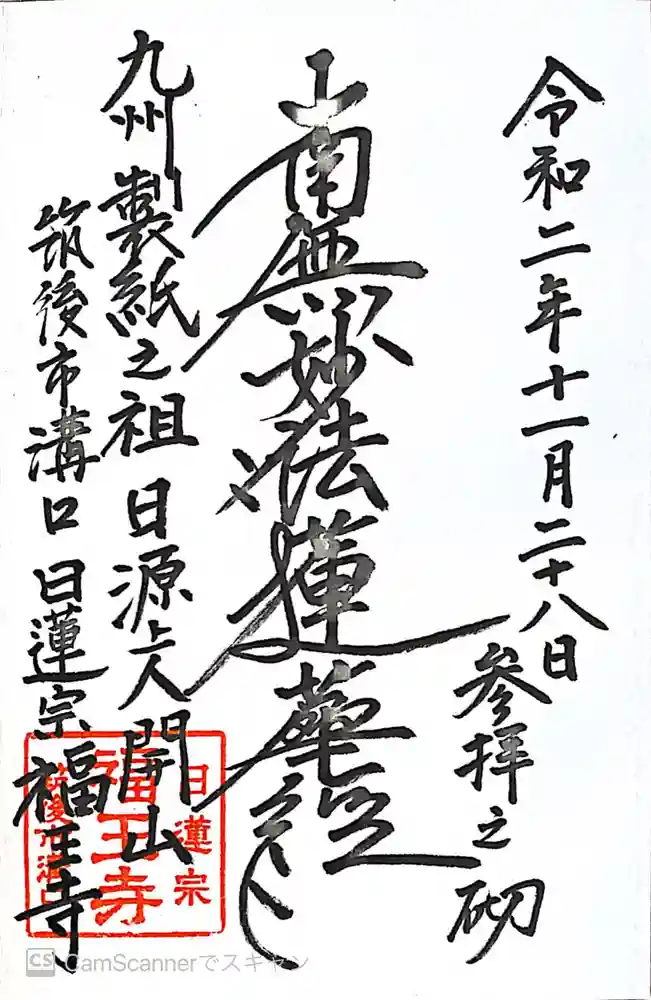 令和二年十一月二十八日
参拝之砌
南無妙法蓮華経
九州製紙之祖 日源上人開山
筑後市溝口 日蓮宗 福王寺
日蓮宗
福王寺
筑後市溝口
CS CamScannerでスキャン